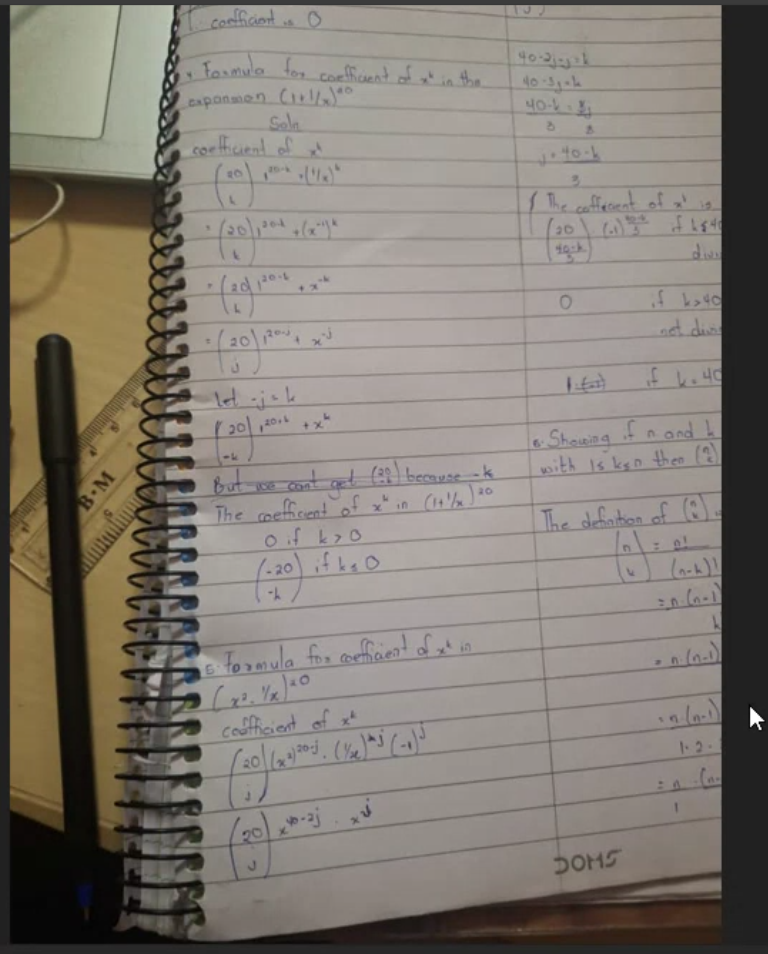 coefficient is 0
4. Formula for coefficient of xᵏ in the
expansion (1+1/x)²⁰
Soln
coefficient of xᵏ
(20 k) 1²⁰⁻ᵏ + (1/x)ᵏ
= (20 k) 1²⁰⁻ᵏ + (x⁻¹)ᵏ
= (20 k) 1²⁰⁻ᵏ + x⁻ᵏ
= (20 j) 1²⁰⁻ʲ + x⁻ʲ
Let -j = k
(20 -k) 1²⁰⁺ᵏ + xᵏ
But we cant get (20 -k) because -k
The coefficient of xᵏ in (1+1/x)²⁰
0 if k > 0
(-20 -k) if k ≤ 0
5. Formula for coefficient of xᵏ in
(x² - 1/x)²⁰
coefficient of xᵏ
(20 j) (x²)²⁰⁻ʲ . (1/x)ʲ (-1)ʲ
(20 j) x⁴⁰⁻²ʲ . x⁻ʲ
40-2j-j=k
40-3j=k
40-k = 3j
3 3
j = 40-k
3
The coefficient of xᵏ is
(20 (40-k)/3) (-1)^((40-k)/3) if k ≤ 40
0 if k > 40
not
if k = 40
6. Showing if n and k
with 1 ≤ k ≤ n then (n k)
The definition of (n k)
(n k) = n!
(n-k)!
= n.(n-1)
k
= n.(n-1)
= n.(n-1)
1.2.
= n . (n-
1
DOMS
B.M